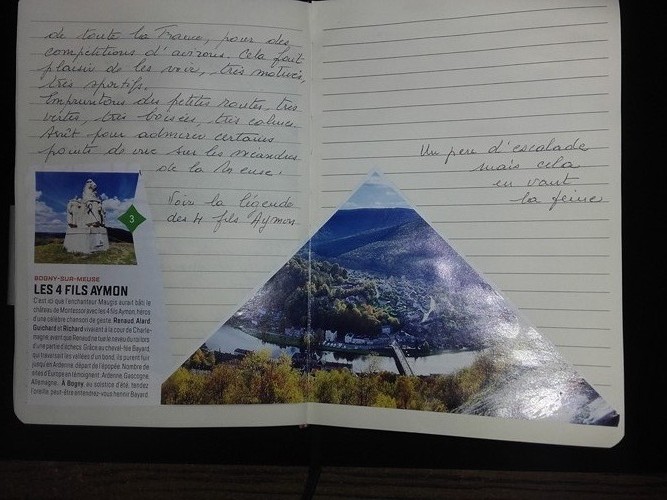 de toute la France, pour des
compétitions d'avirons. Cela fait
plaisir de les voir, très motivés,
très sportifs.
Empruntons des petites routes, très
vertes, très boisées, très calmes.
Arrêt pour admirer certains
points de vue sur les méandres
de la Meuse.
Voir la légende
des 4 fils Aymon
3
BOGNY-SUR-MEUSE
LES 4 FILS AYMON
C'est ici que l'enchanteur Maugis aurait bâti le
château de Montessor avec les 4 fils Aymon, héros
d'une célèbre chanson de geste. Renaud, Alard,
Guichard et Richard vivaient à la cour de Charle-
magne, avant que Renaud ne tue le neveu du roi lors
d'une partie d'échecs. Grâce au cheval-fée Bayard
qui traversait les vallées d'un bond, ils purent fuir
jusqu'en Ardenne, départ de l'épopée. Nombre de
sites d'Europe en témoignent : Ardenne, Gascogne,
Allemagne... À Bogny, au solstice d'été, tendez
l'oreille, peut-être entendrez-vous hennir Bayard.
Un peu d'escalade
mais cela
en vaut
la peine